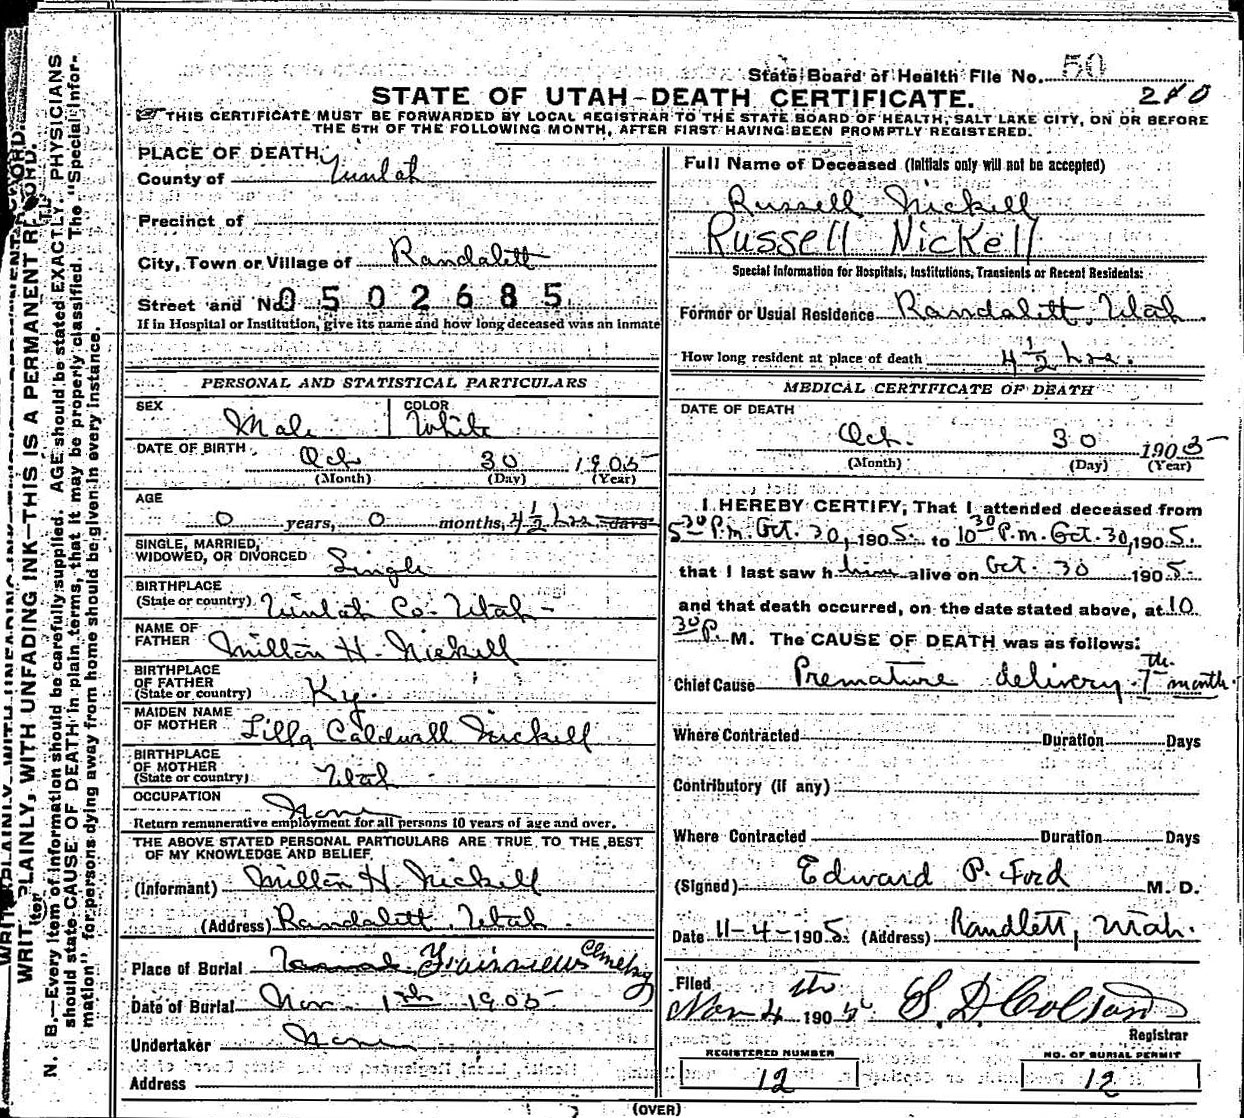 State Board of Health File No. 50
STATE OF UTAH—DEATH CERTIFICATE. 280
THIS CERTIFICATE MUST BE FORWARDED BY LOCAL REGISTRAR TO THE STATE BOARD OF HEALTH, SALT LAKE CITY, ON OR BEFORE
THE 5TH OF THE FOLLOWING MONTH, AFTER FIRST HAVING BEEN PROMPTLY REGISTERED.
WRITE PLAINLY, WITH UNFADING INK—THIS IS A PERMANENT RECORD.
N. B.—Every item of information should be carefully supplied. AGE should be stated EXACTLY. PHYSICIANS
should state CAUSE OF DEATH in plain terms, that it may be properly classified. The "Special Infor-
mation" for persons dying away from home should be given in every instance.
PLACE OF DEATH,
County of Uintah
Precinct of
City, Town or Village of Randalett
Street and No. 0502685
If in Hospital or Institution, give its name and how long deceased was an inmate
PERSONAL AND STATISTICAL PARTICULARS
SEX Male COLOR White
DATE OF BIRTH Oct 30 1905
(Month) (Day) (Year)
AGE
0 years, 0 months, 4 1/2 hrs days
SINGLE, MARRIED,
WIDOWED, OR DIVORCED Single
BIRTHPLACE
(State or country) Uintah Co. Utah
NAME OF
FATHER Milton H. Nickell
BIRTHPLACE
OF FATHER
(State or country) Ky.
MAIDEN NAME
OF MOTHER Lilla Caldwell Nickell
BIRTHPLACE
OF MOTHER
(State or country) Utah
OCCUPATION None
Return remunerative employment for all persons 10 years of age and over.
THE ABOVE STATED PERSONAL PARTICULARS ARE TRUE TO THE BEST
OF MY KNOWLEDGE AND BELIEF
(Informant) Milton H. Nickell
(Address) Randalett, Utah.
Place of Burial Cemetery
Date of Burial Nov. 1st 1905
Undertaker None
Address
Full Name of Deceased (Initials only will not be accepted)
Russell Nickell
Russell Nickell
Special Information for Hospitals, Institutions, Transients or Recent Residents:
Former or Usual Residence Randalett, Utah.
How long resident at place of death 4 1/2 hrs.
MEDICAL CERTIFICATE OF DEATH
DATE OF DEATH
Oct. 30 1905
(Month) (Day) (Year)
I HEREBY CERTIFY, That I attended deceased from
5 30 P.m. Oct. 30, 1905. to 10 30 P.m. Oct. 30, 1905.
that I last saw him alive on Oct. 30 1905.
and that death occurred, on the date stated above, at 10
30 P. M. The CAUSE OF DEATH was as follows:
Chief Cause Premature delivery. 7th month.
Where Contracted Duration Days
Contributory (if any)
Where Contracted Duration Days
(Signed) Edward P. Ford M. D.
Date 11-4-1905. (Address) Randlett, Utah.
Filed
Nov 4th 1905 S. D. Colton
Registrar
REGISTERED NUMBER
12
NO. OF BURIAL PERMIT
12
(OVER)